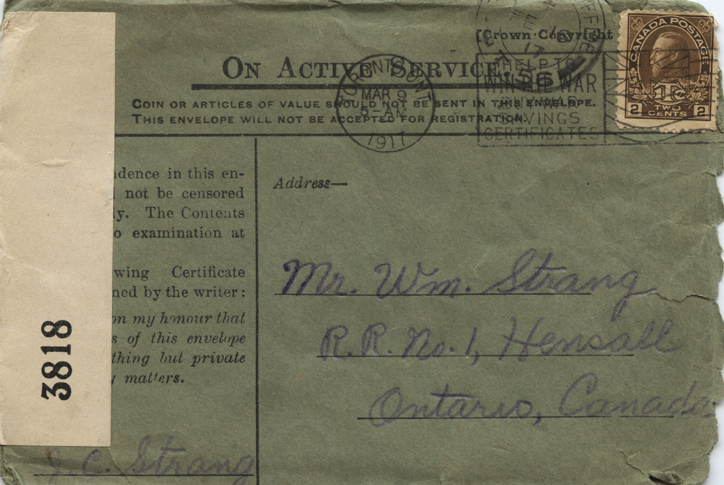 [Crown Copyright
ON ACTIVE SERVICE.
COIN OR ARTICLES OF VALUE SHOULD NOT BE SENT IN THIS ENVELOPE.
THIS ENVELOPE WILL NOT BE ACCEPTED FOR REGISTRATION.
CANADA POSTAGE
1TC
2 TWO CENTS 2
TORONTO, ONT.
MAR 9
5-AM
1917
HELP TO
WIN THE WAR
SAVINGS
CERTIFICATES
dence in this en-
not be censored
y. The Contents
o examination at
wing Certificate
ned by the writer:
on my honour that
s of this envelope
thing but private
matters.
3818
J. C. Strang
Address—
Mr. Wm. Strang
R.R. No. 1, Hensall
Ontario, Canada